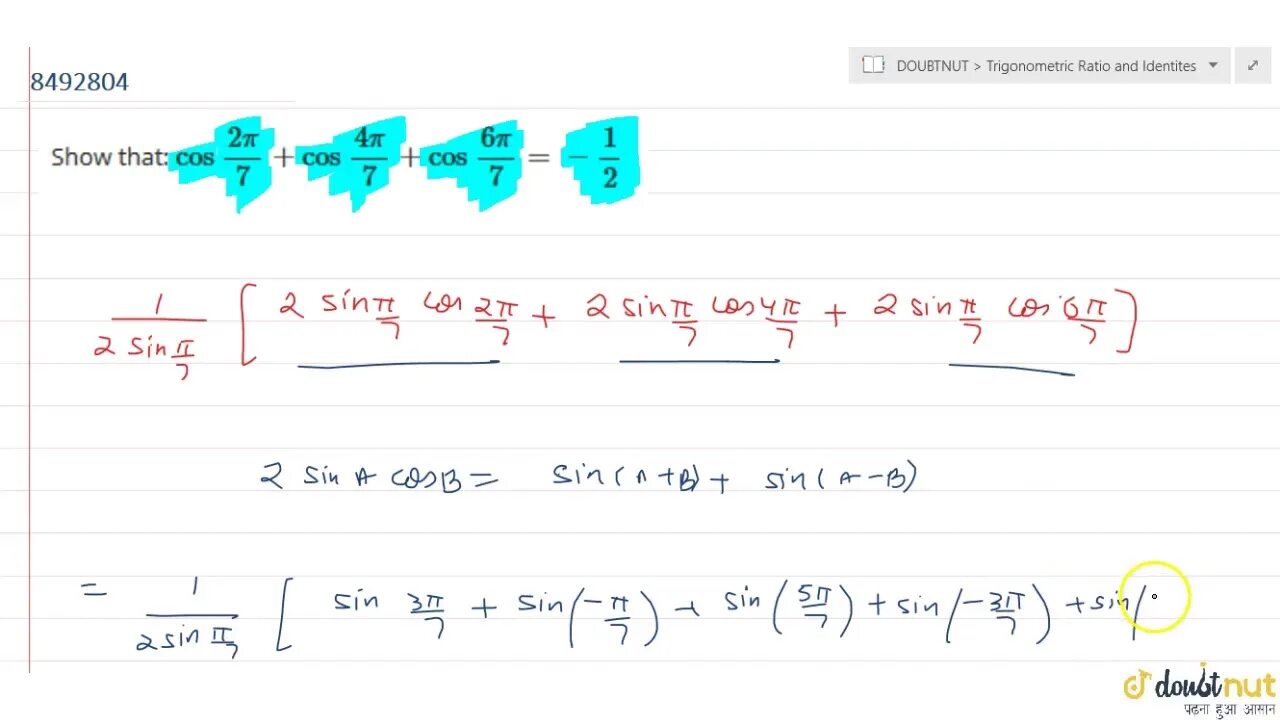 DOUBTNUT > Trigonometric Ratio and Identites
8492804
Show that: cos 2π/7 + cos 4π/7 + cos 6π/7 = - 1/2
1/(2 sin π/7) [ 2 sin π/7 cos 2π/7 + 2 sin π/7 cos 4π/7 + 2 sin π/7 cos 6π/7 ]
2 sin A cos B = sin(A+B) + sin(A-B)
= 1/(2 sin π/7) [ sin 3π/7 + sin(-π/7) + sin(5π/7) + sin(-3π/7) + sin(
doubtnut
पढ़ना हुआ आसान